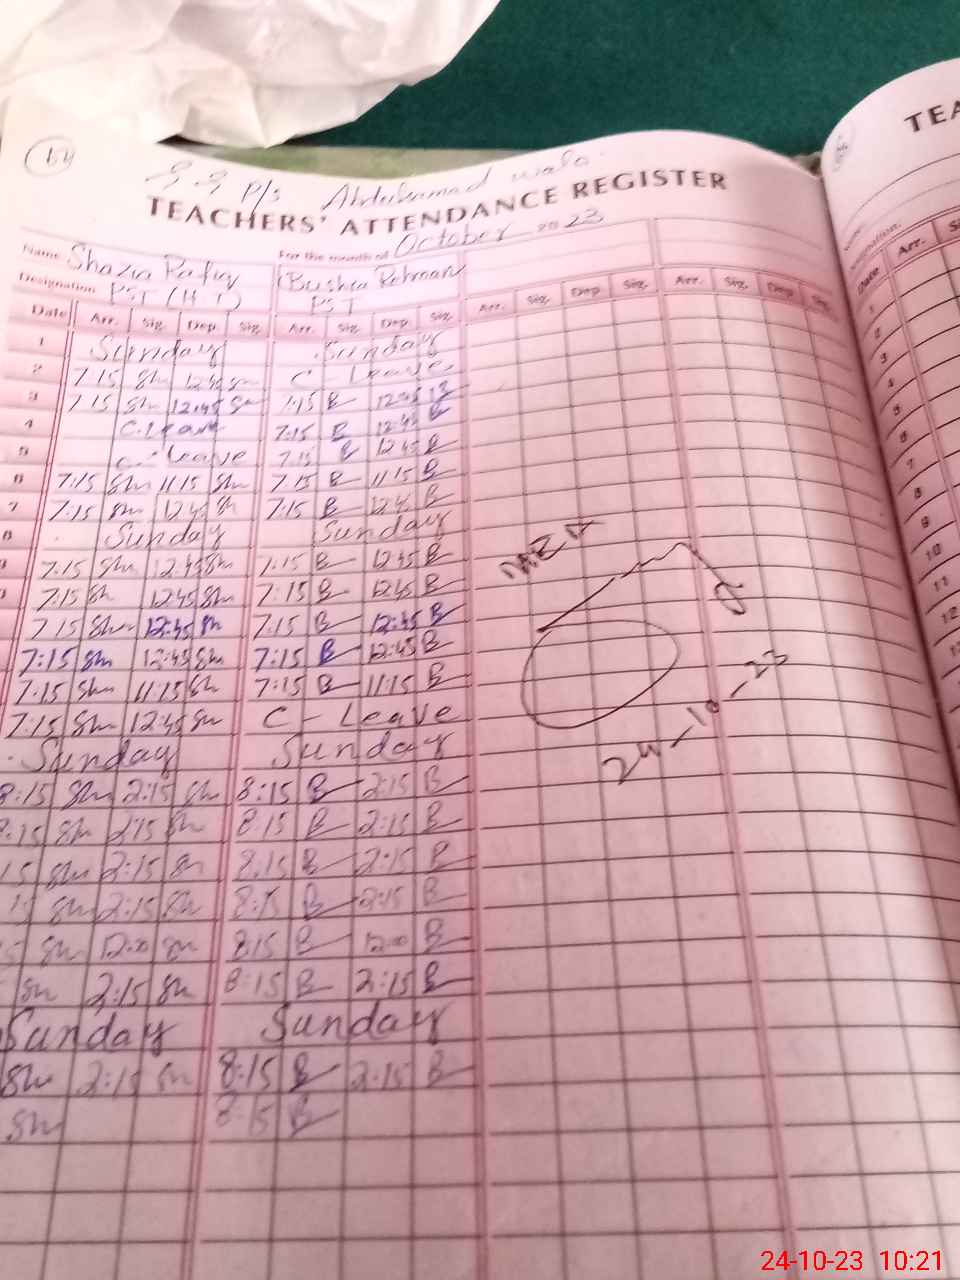 P/S Abduhamad wala
TEACHERS' ATTENDANCE REGISTER
TEA
Name Shazia Rafiq For the month of October 2023
Designation PST (H T) Bushra Rehman
PST
Date Arr. Sig. Dep. Sig. Arr. Sig. Dep. Sig. Arr. Sig. Dep. Sig. Arr. Sig. Dep. Sig.
1 Sunday Sunday
2 7:15 Sh 12:45 Sh C- Leave
3 7:15 Sh 12:45 Sh 7:15 B 12:45 B
4 C. Leave 7:15 B 12:45 B
5 C- Leave 7:15 B 12:45 B
6 7:15 Sh 11:15 Sh 7:15 B 11:15 B
7 7:15 Sh 12:45 Sh 7:15 B 12:45 B
8 Sunday Sunday
7:15 Sh 12:45 Sh 7:15 B 12:45 B
7:15 Sh 12:45 Sh 7:15 B 12:45 B
7:15 Sh 12:45 Sh 7:15 B 12:45 B
7:15 Sh 12:45 Sh 7:15 B 12:45 B
7:15 Sh 11:15 Sh 7:15 B 11:15 B
7:15 Sh 12:45 Sh C- Leave
Sunday Sunday
8:15 Sh 2:15 Sh 8:15 B 2:15 B
8:15 Sh 2:15 Sh 8:15 B 2:15 B
15 Sh 2:15 Sh 8:15 B 2:15 B
15 Sh 2:15 Sh 8:15 B 2:15 B
5 Sh 12:00 Sh 8:15 B 12:00 B
Sh 2:15 Sh 8:15 B 2:15 B
Sunday Sunday
Sh 2:15 Sh 8:15 B 2:15 B
Sh 8:15 B
MEA
24-10-23
Designation:
Date Arr.
1
2
3
4
5
6
7
8
9
10
11
12
24-10-23 10:21